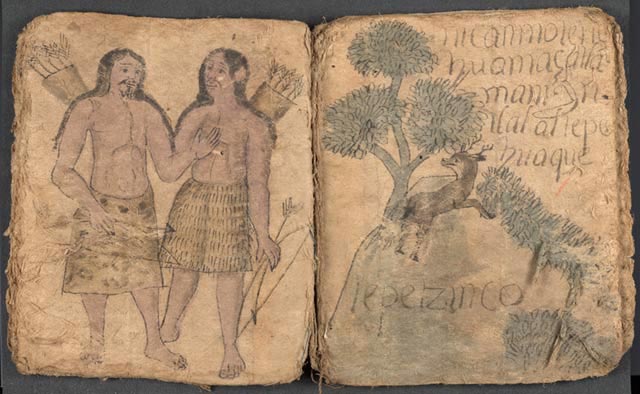 nican motene
huamaçatla
tlalaltepe
huaque
tepetzinco